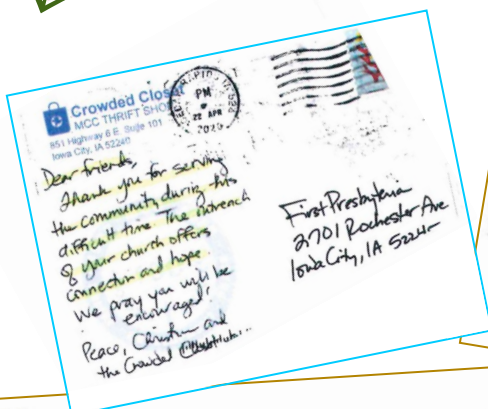 Crowded Closet
MCC THRIFT SHOP
851 Highway 6 E. Suite 101
Iowa City, IA 52240
CEDAR RAPIDS IA
PM
22 APR
2020
Dear friends,
Thank you for serving
the community during this
difficult time. The outreach
of your church offers
connection and hope.
We pray you will be
encouraged!
Peace, and
the Crowded
First Presbyteria
2701 Rochester Ave
Iowa City, IA